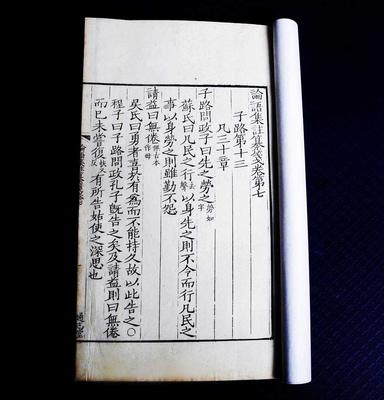 論語集註纂箋卷第七
子路第十三
凡三十章
子路問政子曰先之勞之勞如字
蘇氏曰凡民之行去聲以身先之則不令而行凡民之
事以身勞之則雖勤不怨
請益曰無倦無古本作毋
吳氏曰勇者喜於有為而不能持久故以此告之○
程子曰子路問政孔子既告之矣及請益則曰無倦
而已未嘗復扶又反有所告姑使之深思也
通志堂